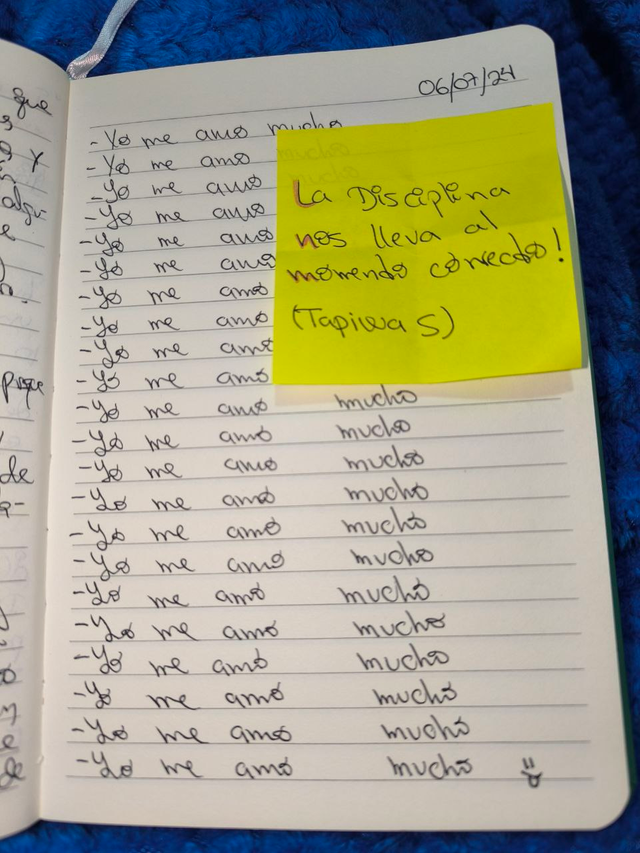 que
y
algu
de
06/07/24
- Yo me amo mucho
- Yo me amo mucho
- Yo me amo mucho
- Yo me amo
- Yo me amo
- Yo me amo
- Yo me amo
- Yo me amo
- Yo me amo
- Yo me amo
- Yo me amo mucho
- Yo me amo mucho
- Yo me amo mucho
- Yo me amo mucho
- Yo me amo mucho
- Yo me amo mucho
- Yo me amo mucho
- Yo me amo mucho
- Yo me amo mucho
- Yo me amo mucho
- Yo me amo mucho
- Yo me amo mucho
La Disciplina
nos lleva al
momento correcto!
(Tapiwa S)